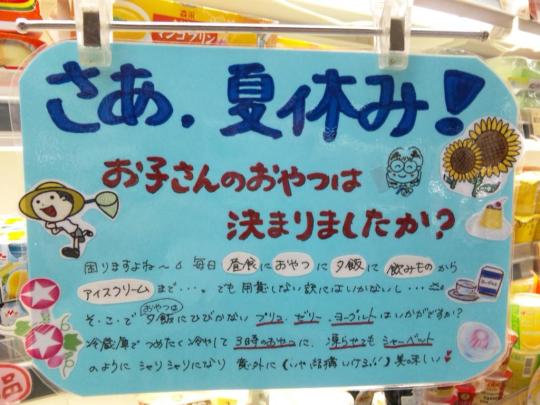 マンゴプリン
さあ、夏休み！
お子さんのおやつは
決まりましたか？
困りますよね〜 毎日 昼食に おやつ に 夕飯に 飲みもの から
アイスクリーム まで・・・。でも 用意しない訳にはいかないし・・・
そ・こ・で おやつは 夕飯にひびかない プリン、ゼリー、ヨーグルト はいかがですか？
冷蔵庫でつめたく冷やして 3時のおやつに、凍らせても シャーベット
のように シャリシャリになり 意外に（いや、結構いける）美味しい